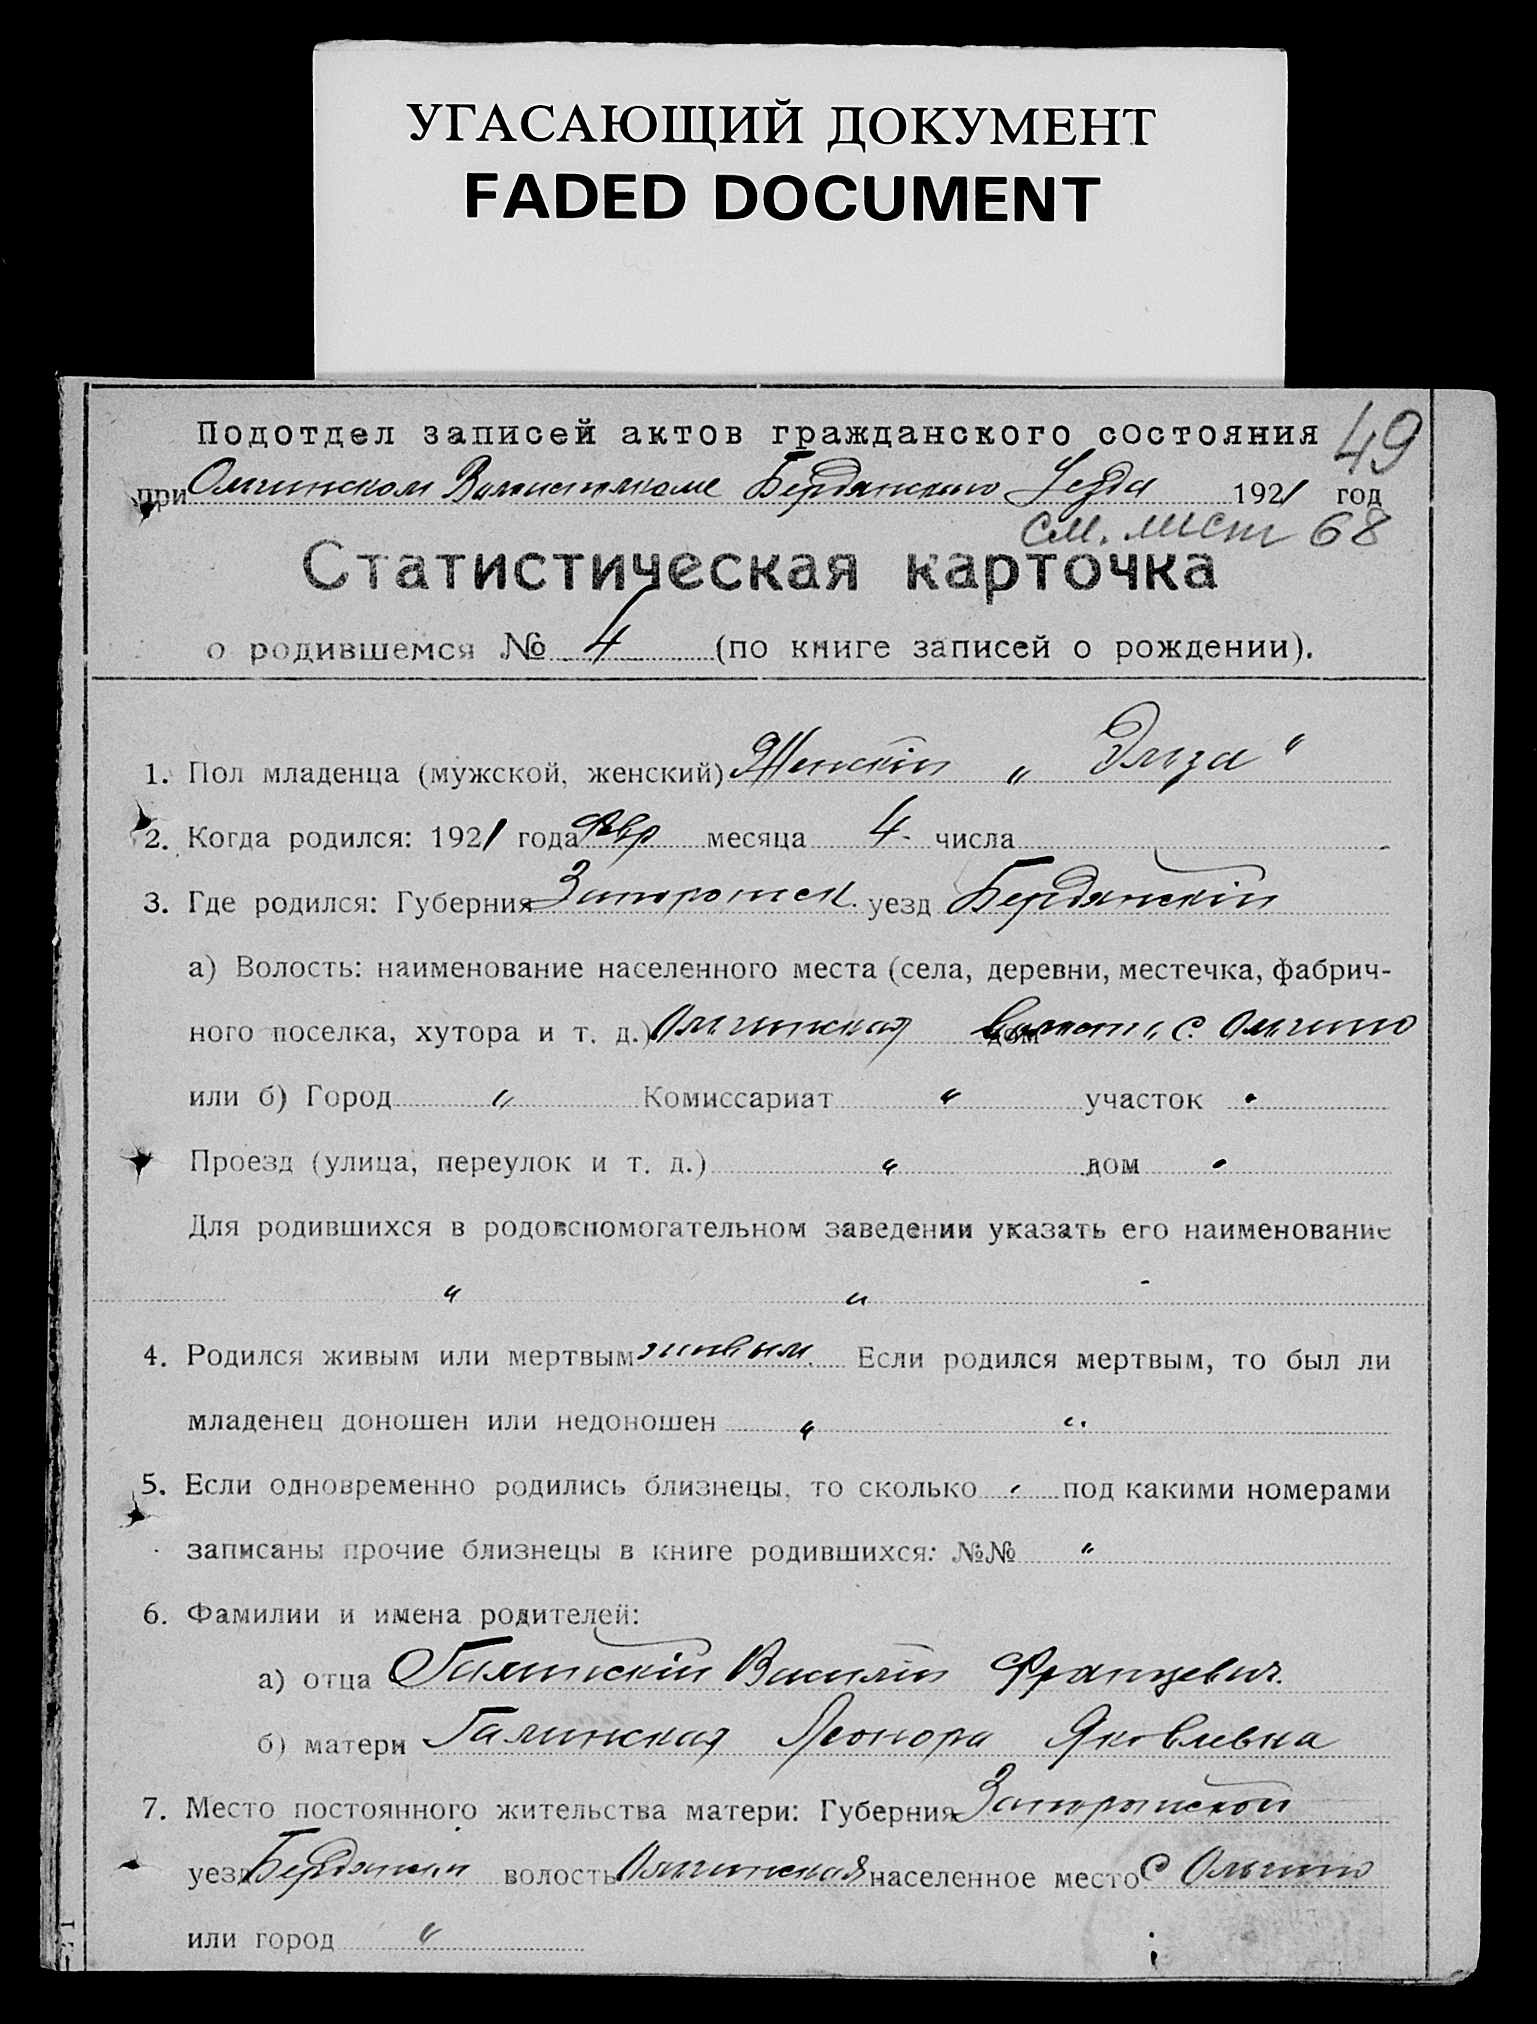 УГАСАЮЩИЙ ДОКУМЕНТ
FADED DOCUMENT
Подотдел записей актов гражданского состояния 49
при Ольгинском Волисполкоме Бердянского Уезда 1921 год
см. лист 68
Статистическая карточка
о родившемся № 4 (по книге записей о рождении).
1. Пол младенца (мужской, женский) Женскій „ Эльза “
2. Когда родился: 1921 года февр месяца 4 числа
3. Где родился: Губерния Запорожск. уезд Бердянскій
а) Волость: наименование населенного места (села, деревни, местечка, фабрич-
ного поселка, хутора и т. д.) Ольгинская волост., с. Ольгино дом
или б) Город „ Комиссариат „ участок „
Проезд (улица, переулок и т. д.) „ дом „
Для родившихся в родовспомогательном заведении указать его наименование
„ „
4. Родился живым или мертвым живым. Если родился мертвым, то был ли
младенец доношен или недоношен „ „
5. Если одновременно родились близнецы, то сколько „ под какими номерами
записаны прочие близнецы в книге родившихся: №№ „
6. Фамилии и имена родителей:
а) отца Галинскій Василій Францевич.
б) матери Галинская Леонора Яковлевна
7. Место постоянного жительства матери: Губерния Запорожской
уезд Бердянскій волость Ольгинская населенное место с Ольгино
или город „